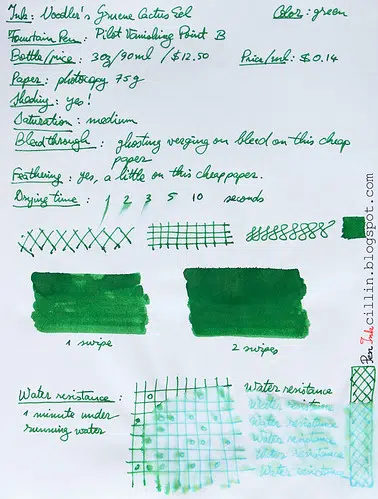 Ink: Noodler's Gruene Cactus Eel Color: green
Fountain Pen: Pilot Vanishing Point B
Bottle/price: 3oz/90ml /$12.50 Price/ml: $0.14
Paper: photocopy 75g
Shading: yes!
Saturation: medium
Bleedthrough: ghosting verging on bleed on this cheap
paper
Feathering: yes, a little on this cheap paper.
Drying time: 1 2 3 5 10 seconds
1 swipe
2 swipes
Water resistance:
1 minute under
running water
Water resistance
Water resistance
Water resistance
Water resistance
Water resistance
Water resistance
Pen Inkcillin.blogspot.com